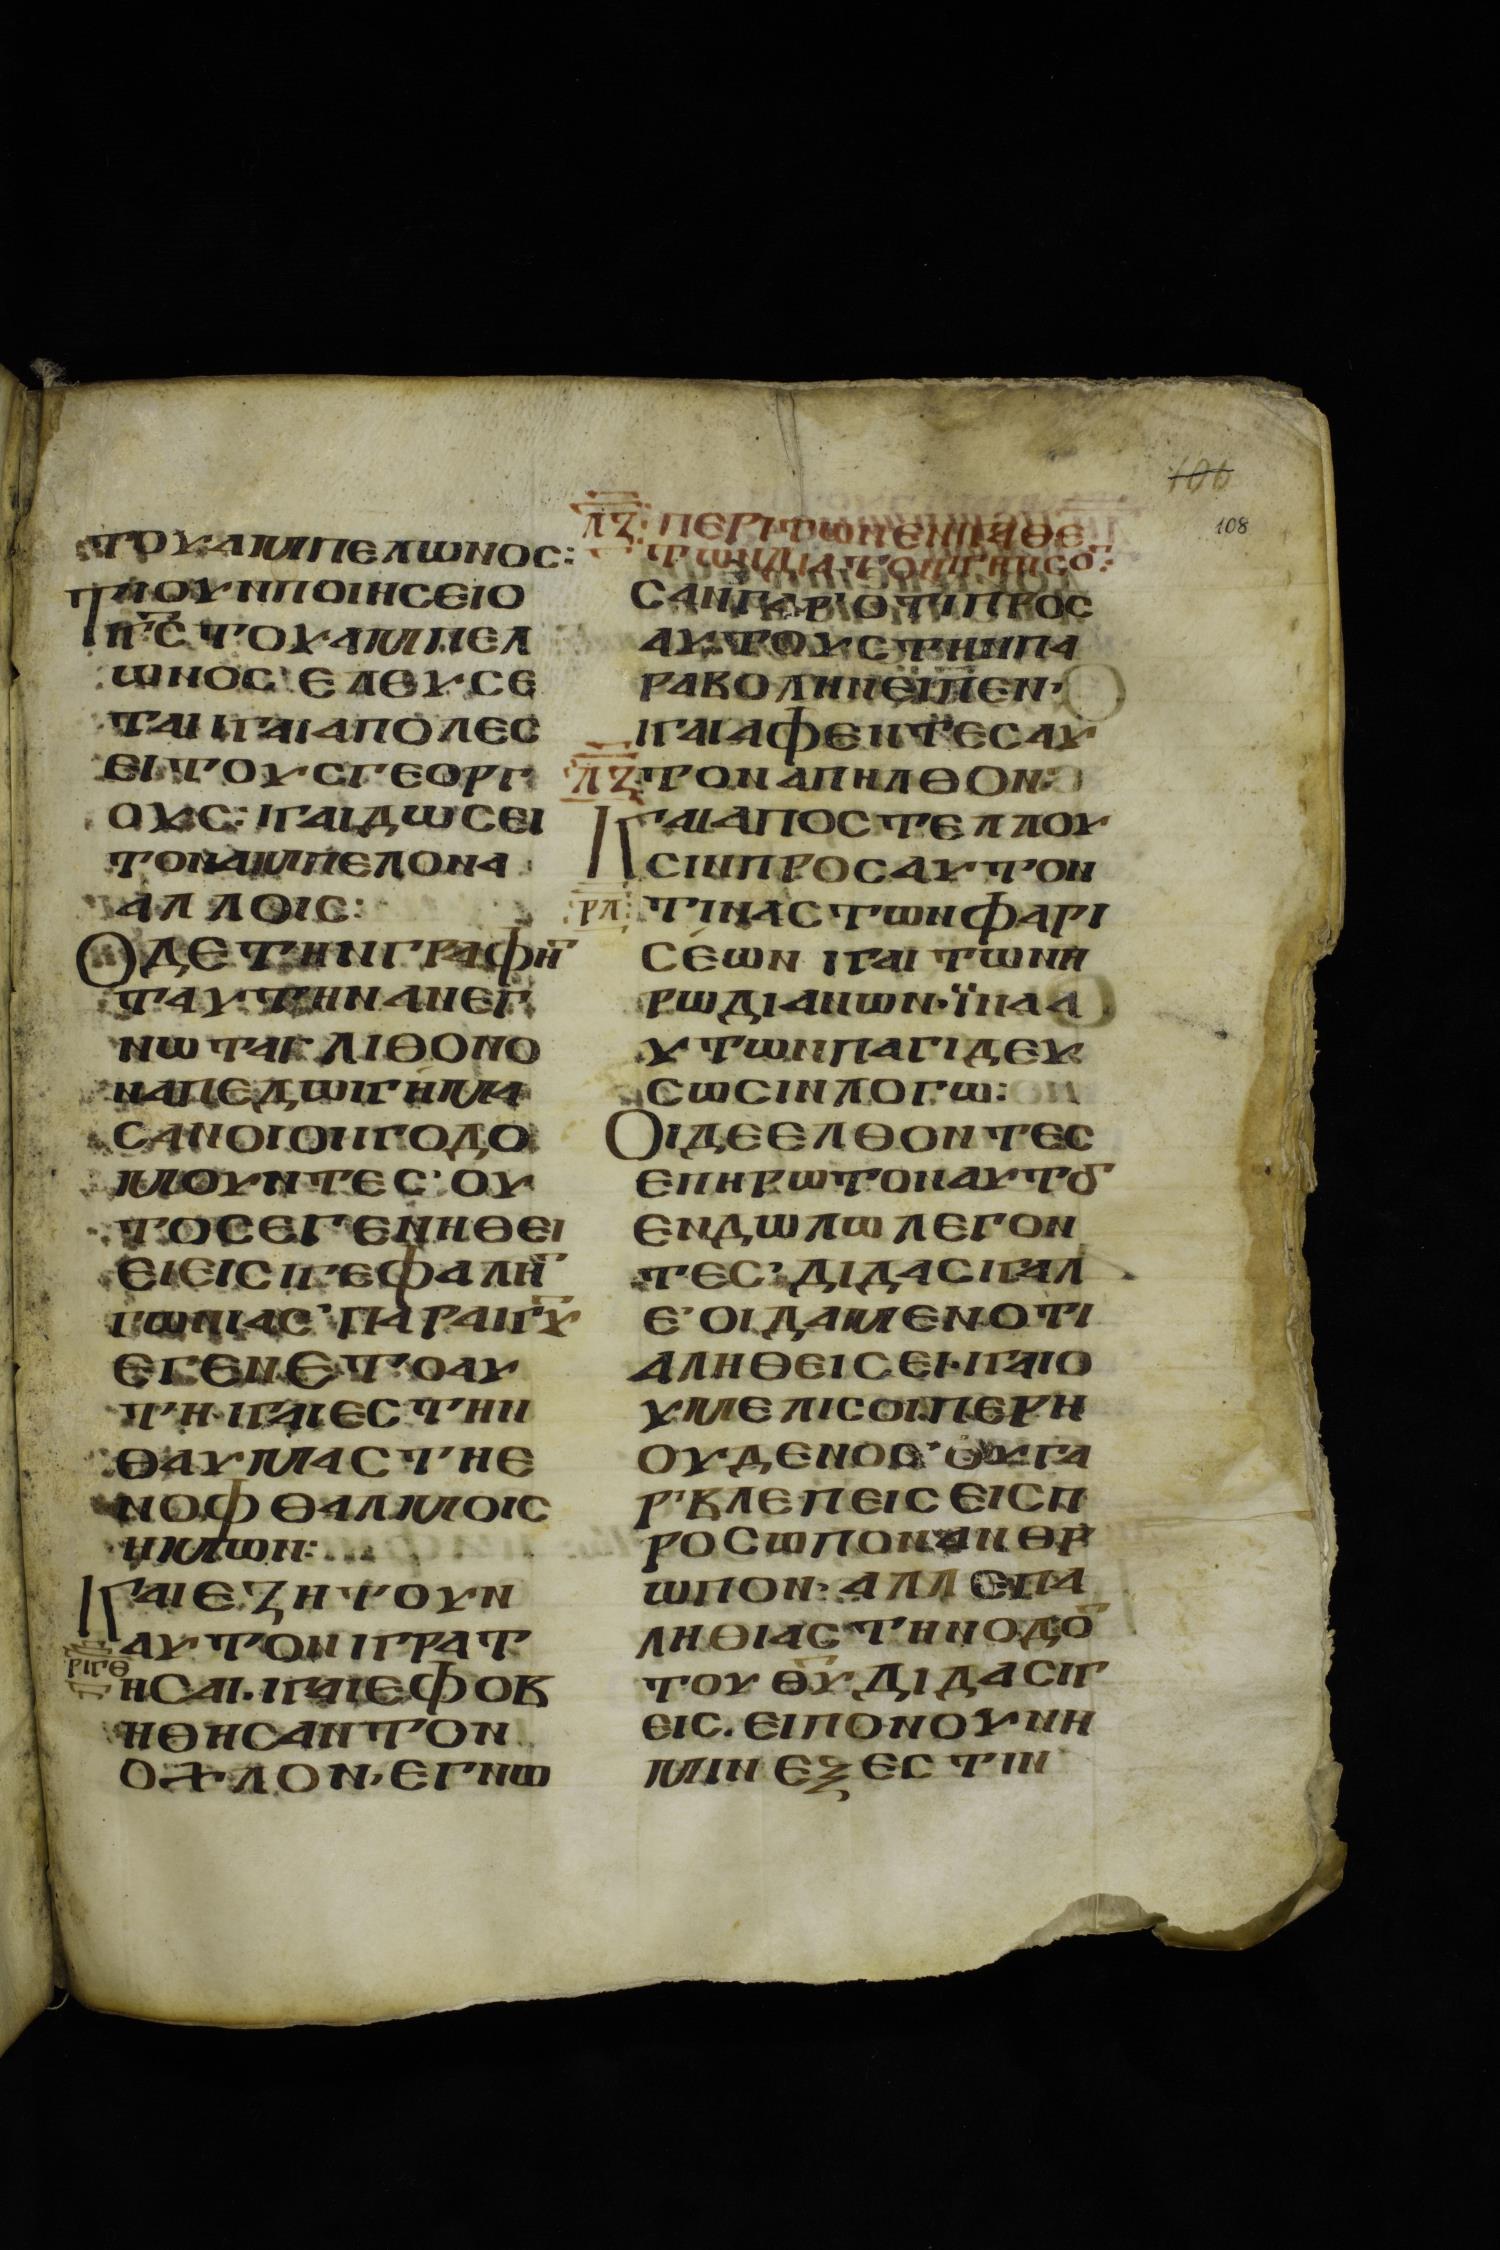 106
108
ΤΟΥΑΜΠΕΛΩΝΟC:
ΤΙΟΥΝΠΟΙΗCΕΙΟ
Κ̅C̅ΤΟΥΑΜΠΕΛ
ΩΝΟC·ΕΛΕΥCΕ
ΤΑΙΚΑΙΑΠΟΛΕC
ΕΙΤΟΥCΓΕΟΡΓ
ΟΥC:ΚΑΙΔΩCΕΙ
ΤΟΝΑΜΠΕΛΟΝΑ
ΑΛΛΟΙC:
ΟΔΕΤΗΝΓΡΑΦΗ̅
ΤΑΥΤΗΝΑΝΕΓ
ΝΩΤΑΙ·ΛΙΘΟΝΟ
ΝΑΠΕΔΩΚΗΜΑ
CΑΝΟΙΟΙΚΟΔΟ
ΜΟΥΝΤΕC·ΟΥ
ΤΟCΕΓΕΝΗΘΕΙ
ΕΙΕΙCΚΕΦΑΛΗ̅
ΓΩΝΙΑC·ΠΑΡΑΚ̅Υ̅
ΕΓΕΝΕΤΟΑΥ
ΤΗ·ΚΑΙΕCΤΗΝ
ΘΑΥΜΑCΤΗΕ
ΝΟΦΘΑΛΜΟΙC
ΗΜΩΝ:
ΚΑΙΕΖΗΤΟΥΝ
ΑΥΤΟΝΚΡΑΤ
ΡΚΘ
ΗCΑΙ·ΚΑΙΕΦΟΒ
ΗΘΗCΑΝΤΟΝ
ΟΧΛΟΝ·ΕΓΝΩ
ΛΖ:ΠΕΡΙΤΩΝΕΝΚΑΘΕ
ΤΩΝΔΙΑΤΟΝΚΗΝCΟ̅:
CΑΝΓΑΡ·ΟΤΙΠΡΟC
ΑΥΤΟΥCΤΗΝΠΑ
ΡΑΒΟΛΗΝΕΙΠΕΝ·
ΚΑΙΑΦΕΝΤΕCΑΥ
ΛΖ
ΤΟΝΑΠΗΛΘΟΝ:
ΚΑΙΑΠΟCΤΕΛΛΟΥ
CΙΝΠΡΟCΑΥΤΟΝ
ΡΛ:
ΤΙΝΑCΤΩΝΦΑΡΙ
CΕΩΝΚΑΙΤΩΝΗ
ΡΩΔΙΑΝΩΝ·ΪΝΑΑ
ΥΤΩΝΠΑΓΙΔΕΥ
CΩCΙΝΛΟΓΩ:
ΟΙΔΕΕΛΘΟΝΤΕC
ΕΠΗΡΩΤΟΝΑΥΤȢ
ΕΝΔΩΛΩΛΕΓΟΝ
ΤΕC·ΔΙΔΑCΚΑΛ
Ε·ΟΙΔΑΜΕΝΟΤΙ
ΑΛΗΘΕΙCΕΙ·ΚΑΙΟ
ΥΜΕΛΙCΟΙΠΕΡΗ
ΟΥΔΕΝΟC·ΟΥΓΑ
Ρ·ΒΛΕΠΕΙCΕΙCΠ
ΡΟCΩΠΟΝΑΝΘΡ
ΩΠΟΝ·ΑΛΛΕΠΑ
ΛΗΘΙΑCΤΗΝΟΔΟ̅
ΤΟΥΘ̅Υ̅ΔΙΔΑCΚ
ΕΙC·ΕΙΠΟΝΟΥΝΗ
ΜΙΝΕΞΕCΤΙΝ